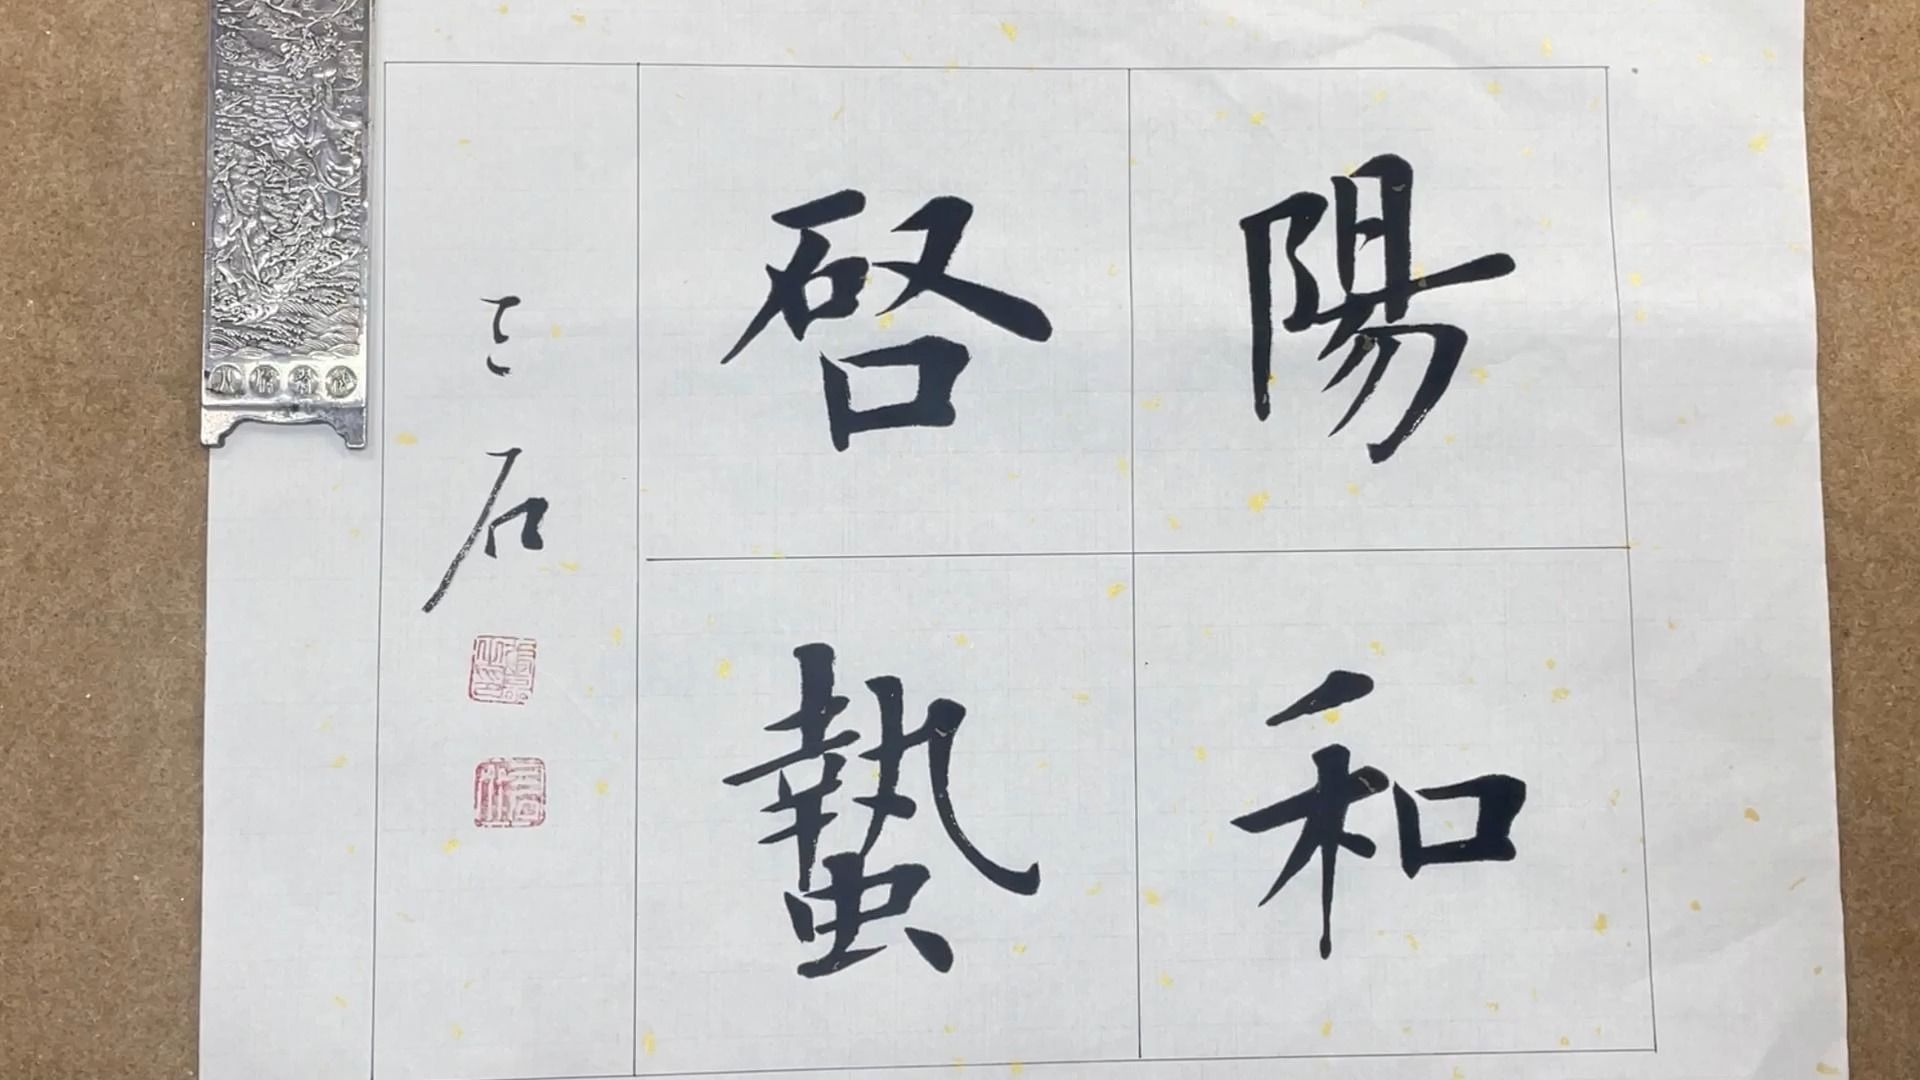 陽和
啓蟄
三石